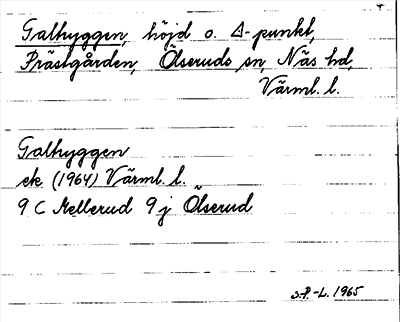 Galhyggen, höjd o. Δ-punkt,
Prästgården, Ölseruds sn Näs hd,
Värml. l.
Galhyggen
ek (1964) Värml. l.
9 C Mellerud 9 j Ölserud
S.P.-L. 1965